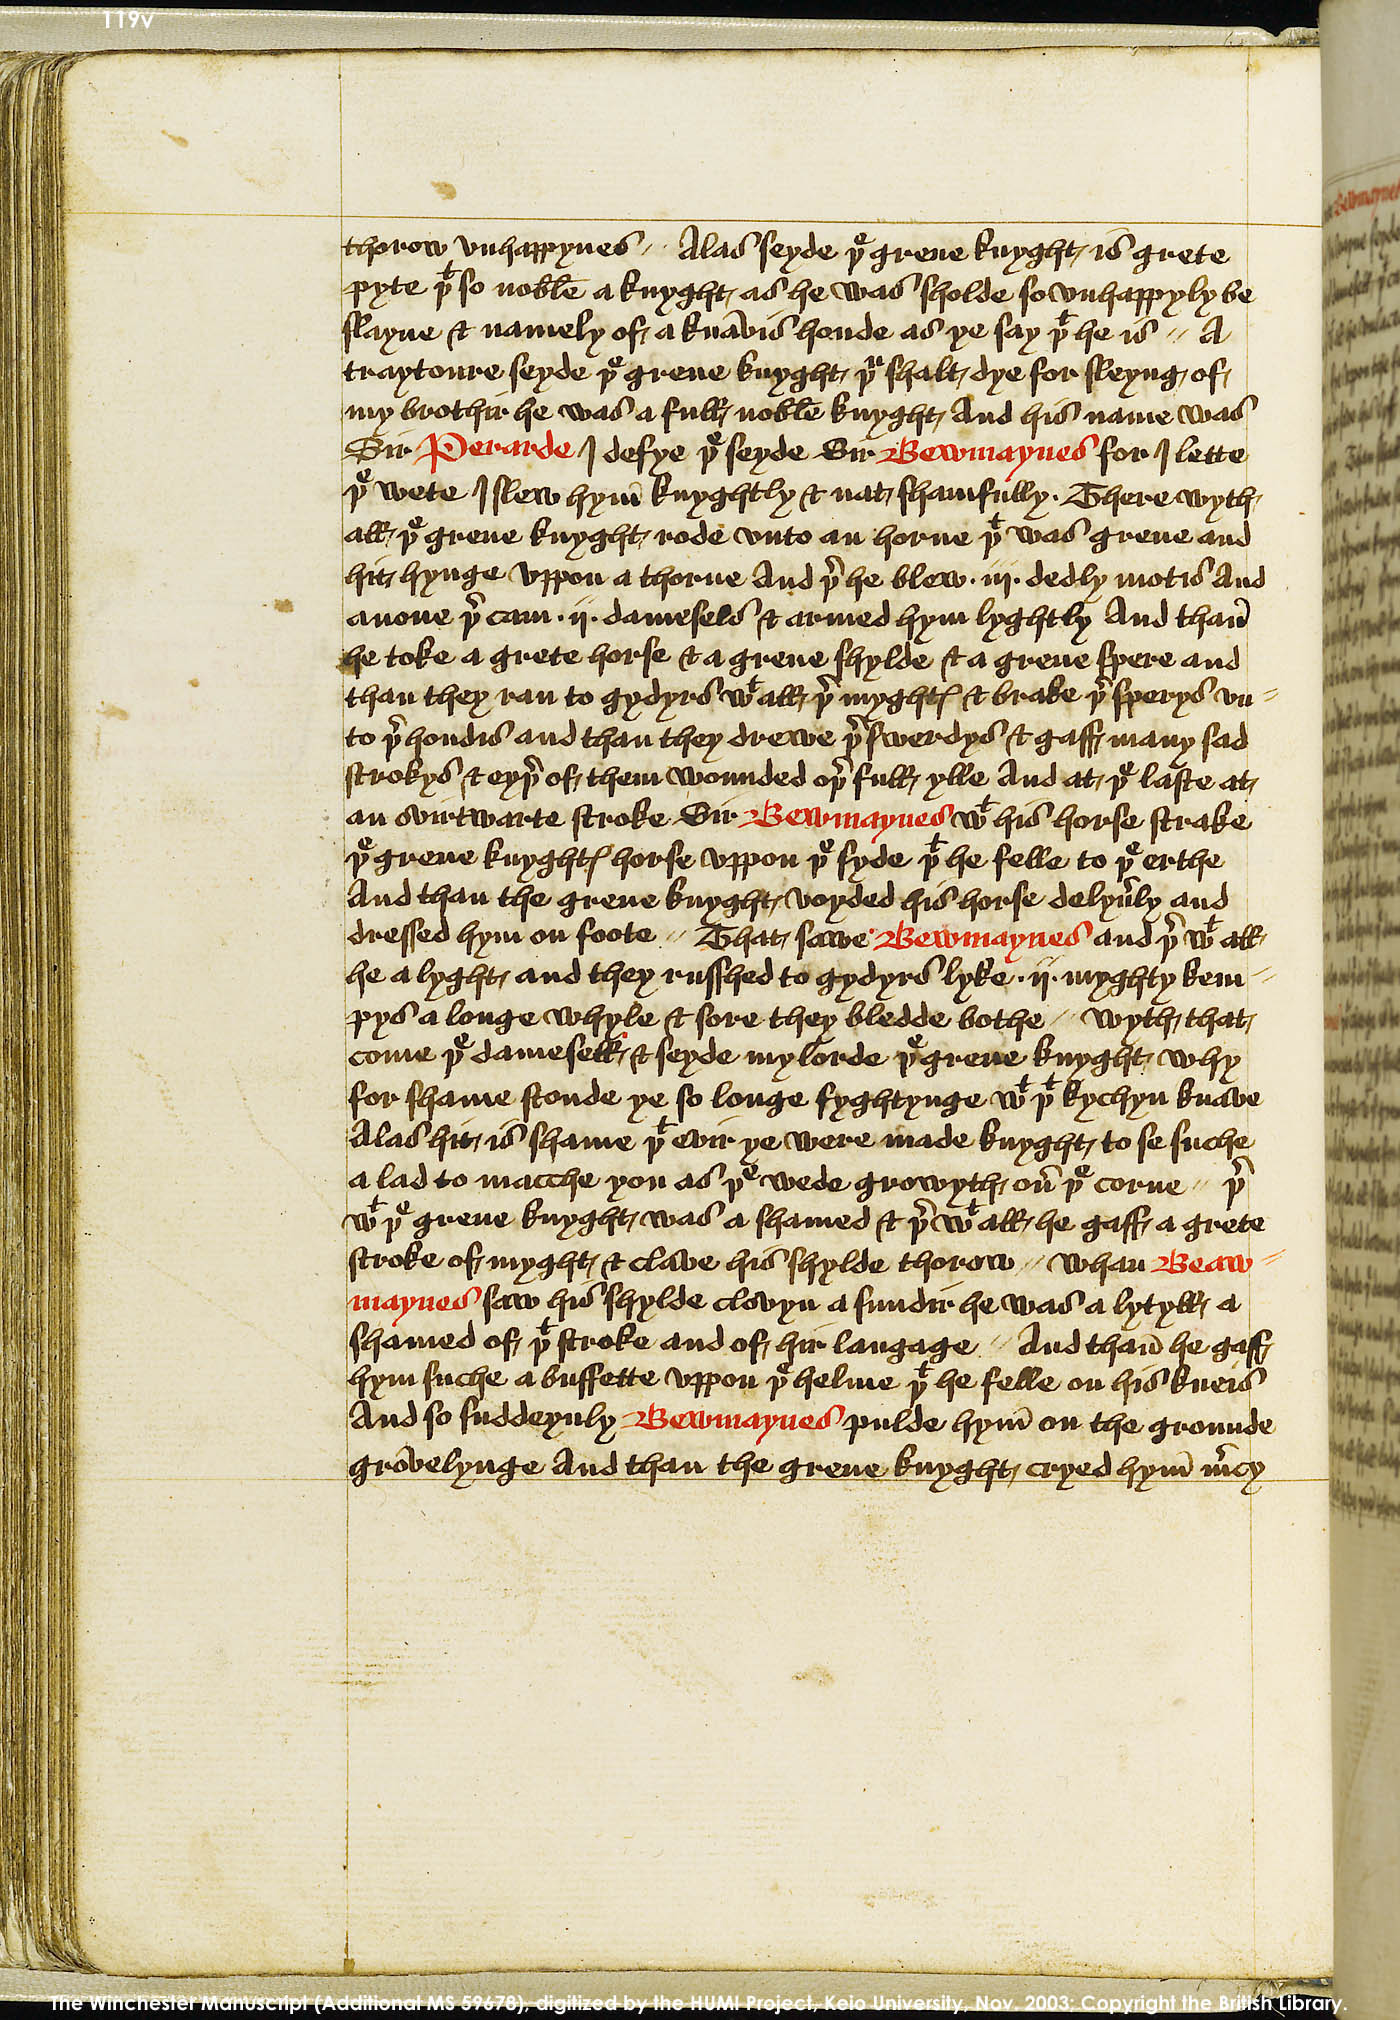 119v
thorow vnhappynes // Alas seyde þe grene knyght is grete
pyte þt so noble a knyght as he was sholde so vnhappyly be
slayne & namely of a knavis honde as ye say þt he is // A
traytoure seyde þe grene knyght þu shalt dye for sleyng of
my brothir he was a full noble knyght And his name was
Sir Perarde I defye þe seyde Sir Bewmaynes for I lette
þe wete I slew hym̄ knyghtly & nat shamfully. There wyth
all þe grene knyght rode vnto an horne þt was grene and
hit hynge vppon a thorne And þr he blew .iij. dedly motis And
anone þr cam .ij. damesels & armed hym lyghtly And than̄
he toke a grete horse & a grene shylde & a grene spere and
than they ran to gydyrs wt all þr myghtꝭ & brake þr sperys vn=
to þr hondis and than they drewe þr swerdys & gaff many sad
strokys & eyþr of them wounded oþr full ylle And at þe laste at
an ovirtwarte stroke Sir Bewmaynes wt his horse strake
þe grene knyghtꝭ horse vppon þe syde þt he felle to þe erthe
And than the grene knyght voyded his horse delyūly and
dressed hym on foote // That sawe Bewmaynes and þr wt all
he a lyght and they russhed to gydyrs lyke .ij. myghty kem=
pys a longe whyle & sore they bledde bothe // Wyth that
come þe damesell & seyde my lorde þe grene knyght why
for shame stonde ye so longe fyghtynge wt þt kychyn knave
Alas hit is shame þt evir ye were made knyght to se suche
a lad to macche you as þe wede growyth oū þe corne // þr
wt þe grene knyght was a shamed & þr wt all he gaff a grete
stroke of myght & clave his shylde thorow // Whan Beaw=
maynes saw his shylde clovyn a sundir he was a lytyll a
shamed of þt stroke and of hir langage // And than̄ he gaff
hym suche a buffette vppon þe helme þt he felle on his kneis
And so suddeynly Bewmaynes pulde hym̄ on the grounde
grovelynge And than the grene knyght cryed hym̄ m̄cy
The Winchester Manuscript (Additional MS 59678), digitized by the HUMI Project, Keio University, Nov. 2003; Copyright the British Library.